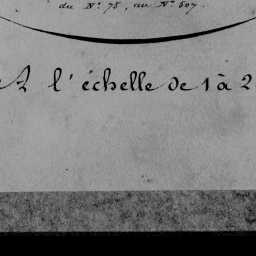 du N.º 75, au N.º 507.
à l'échelle de 1 à 2